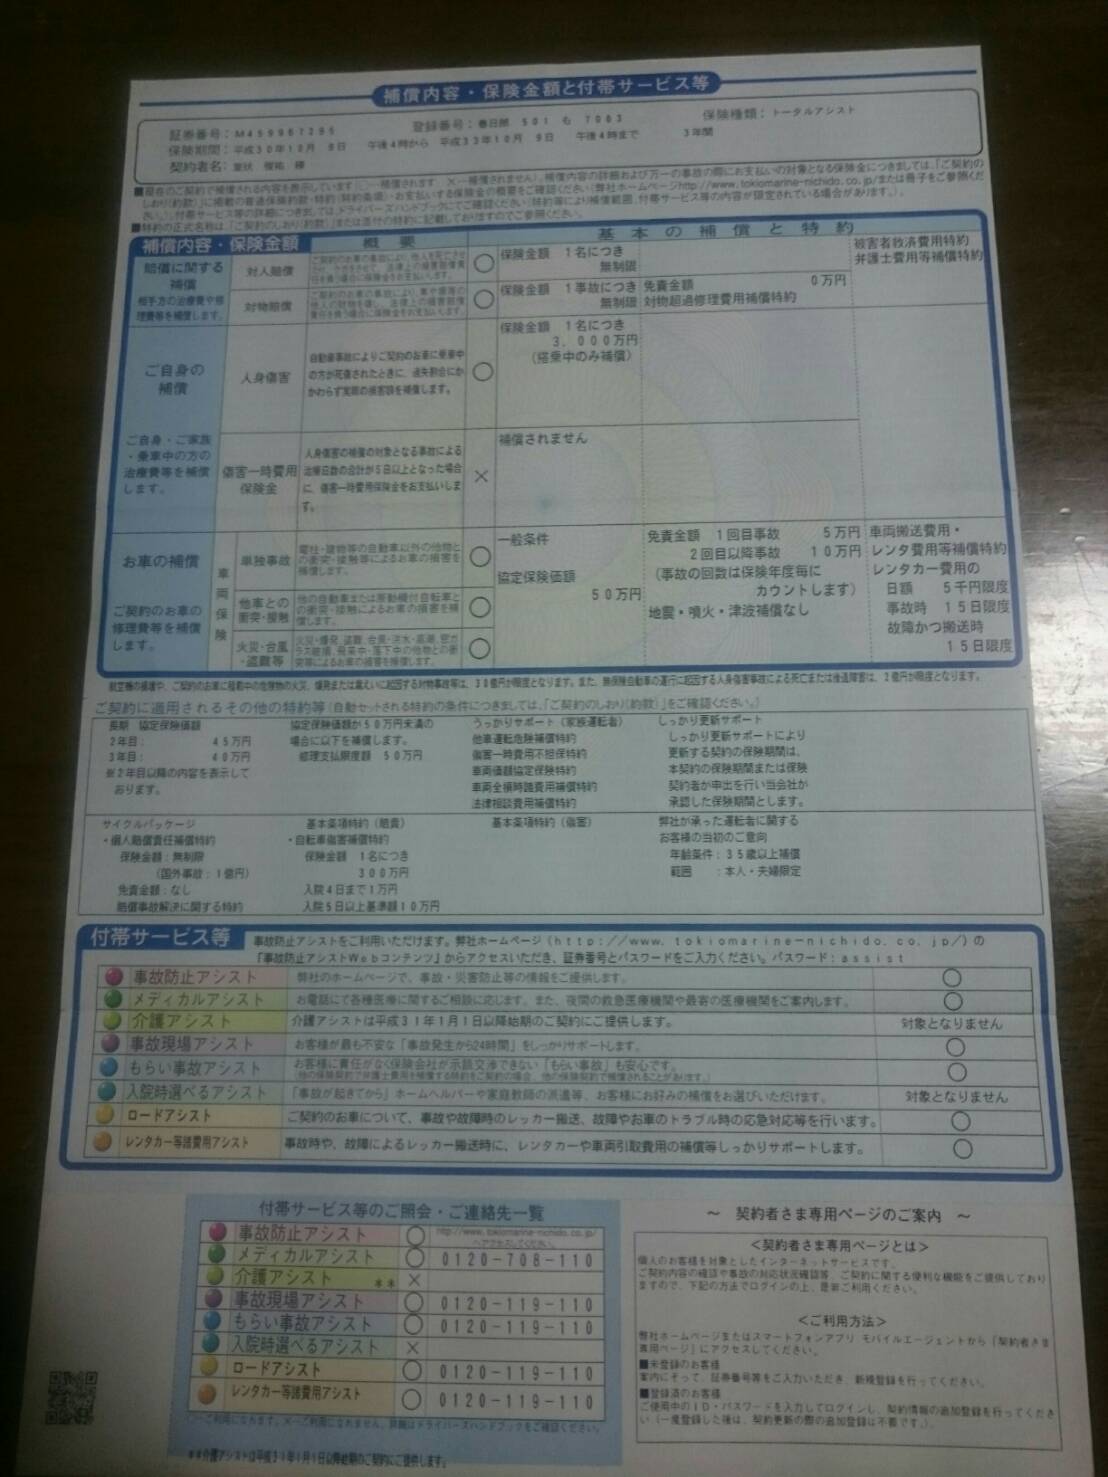 補償内容・保険金額と付帯サービス等
証券番号：M459967295 登録番号：春日部 501 も 7003 保険種類：トータルアシスト
保険期間：平成30年10月 9日 午後4時から 平成33年10月 9日 午後4時まで 3年間
契約者名：
■現在のご契約で補償される内容を表示しています(○…補償されます ×…補償されません)。補償内容の詳細および万一の事故の際にお支払いの対象となる保険金につきましては、「ご契約の
しおり(約款)」に掲載の普通保険約款・特約(契約条項)・お支払いする保険金の概要をご確認ください(弊社ホームページhttp://www.tokiomarine-nichido.co.jp/または冊子をご参照くだ
さい)。付帯サービス等の詳細につきましては、ドライバーズハンドブックにてご確認ください(特約等により補償範囲、付帯サービス等の内容が限定されている場合があります。)。
■特約の正式名称は「ご契約のしおり(約款)」または添付の特約に記載しておりますのでご参照ください。
補償内容・保険金額 概要 基本の補償と特約
賠償に関する
補償
相手方の治療費や修
理費等を補償します。
対人賠償 ○ 保険金額 1名につき
無制限
被害者救済費用特約
弁護士費用等補償特約
対物賠償 ○ 保険金額 1事故につき
無制限
免責金額 0万円
対物超過修理費用補償特約
ご自身の
補償
ご自身・ご家族
・乗車中の方の
治療費等を補償
します。
人身傷害
自動車事故によりご契約のお車に乗車中
の方が死傷されたときに、過失割合にか
かわらず実際の損害額を補償します。
○
保険金額 1名につき
3,000万円
(搭乗中のみ補償)
傷害一時費用
保険金
人身傷害の補償の対象となる事故による
治療日数の合計が5日以上となった場合
に、傷害一時費用保険金をお支払いしま
す。
×
補償されません
お車の補償
ご契約のお車の
修理費等を補償
します。
車両保険
単独事故
電柱・建物等の自動車以外の他物と
の衝突・接触等によるお車の損害を
補償します。
○
他車との
衝突・接触
他の自動車または原動機付自転車と
の衝突・接触によるお車の損害を補
償します。
○
火災・台風
・盗難等
火災・爆発、盗難、台風・洪水・高潮、窓ガ
ラス破損、飛来中・落下中の他物との衝
突等によるお車の損害を補償します。
○
一般条件
協定保険価額
50万円
免責金額 1回目事故 5万円
2回目以降事故 10万円
(事故の回数は保険年度毎に
カウントします)
地震・噴火・津波補償なし
車両搬送費用・
レンタ費用等補償特約
レンタカー費用の
日額 5千円限度
事故時 15日限度
故障かつ搬送時
15日限度
航空機の損壊や、ご契約のお車に積載中の危険物の火災、爆発または漏えいに起因する対物事故等は、30億円が限度となります。また、無保険自動車の運行に起因する人身傷害事故による死亡または後遺障害は、2億円が限度となります。
ご契約に適用されるその他の特約等(自動セットされる特約の条件につきましては、「ご契約のしおり(約款)」をご確認ください。)
長期 協定保険価額
2年目： 45万円
3年目： 40万円
※2年目以降の内容を表示して
おります。
協定保険価額が50万円未満の
場合に以下を補償します。
修理支払限度額 50万円
うっかりサポート(家族運転者)
他車運転危険補償特約
傷害一時費用不担保特約
車両価額協定保険特約
車両全損時諸費用補償特約
法律相談費用補償特約
しっかり更新サポート
しっかり更新サポートにより
更新する契約の保険期間は、
本契約の保険期間または保険
契約者が申出を行い当会社が
承認した保険期間とします。
サイクルパッケージ
・個人賠償責任補償特約
保険金額：無制限
(国外事故：1億円)
免責金額：なし
賠償事故解決に関する特約
基本条項特約(賠責)
・自転車傷害補償特約
保険金額 1名につき
300万円
入院4日まで1万円
入院5日以上基準額10万円
基本条項特約(傷害)
弊社が承った運転者に関する
お客様の当初のご意向
年齢条件：35歳以上補償
範囲 ：本人・夫婦限定
付帯サービス等
事故防止アシストをご利用いただけます。弊社ホームページ(http://www.tokiomarine-nichido.co.jp/)の
「事故防止アシストWebコンテンツ」からアクセスいただき、証券番号とパスワードをご入力ください。パスワード：assist
事故防止アシスト 弊社のホームページで、事故・災害防止等の情報をご提供します。 ○
メディカルアシスト お電話にて各種医療に関するご相談に応じます。また、夜間の救急医療機関や最寄の医療機関をご案内します。 ○
介護アシスト 介護アシストは平成31年1月1日以降始期のご契約にご提供します。 対象となりません
事故現場アシスト お客様が最も不安な「事故発生から24時間」をしっかりサポートします。 ○
もらい事故アシスト お客様に責任がなく保険会社が示談交渉できない「もらい事故」も安心です。 ○
(他の保険契約で弁護士費用を補償する特約をご契約の場合、他の保険契約で補償されることがあります。)
入院時選べるアシスト 「事故が起きてから」ホームヘルパーや家庭教師の派遣等、お客様にお好みの補償をお選びいただけます。 対象となりません
ロードアシスト ご契約のお車について、事故や故障時のレッカー搬送、故障やお車のトラブル時の応急対応等を行います。 ○
レンタカー等諸費用アシスト 事故時や、故障によるレッカー搬送時に、レンタカーや車両引取費用の補償等しっかりサポートします。 ○
付帯サービス等のご照会・ご連絡先一覧
事故防止アシスト ○ http://www.tokiomarine-nichido.co.jp/
へアクセスしてください。
メディカルアシスト ○ 0120-708-110
介護アシスト ＊＊ ×
事故現場アシスト ○ 0120-119-110
もらい事故アシスト ○ 0120-119-110
入院時選べるアシスト ×
ロードアシスト ○ 0120-119-110
レンタカー等諸費用アシスト ○ 0120-119-110
○…ご利用になれます。×…ご利用になれません。詳細はドライバーズハンドブックをご確認ください。
＊＊介護アシストは平成31年1月1日以降始期のご契約にご提供します。
～ 契約者さま専用ページのご案内 ～
＜契約者さま専用ページとは＞
個人のお客様を対象としたインターネットサービスです。
ご契約内容の確認や事故の対応状況確認等、ご契約に関する便利な機能をご提供しており
ますので、下記の方法でログインの上、是非ご利用ください。
＜ご利用方法＞
弊社ホームページまたはスマートフォンアプリ モバイルエージェントから「契約者さま
専用ページ」にアクセスしてください。
■未登録のお客様
案内にそって、証券番号等をご入力いただき、新規登録を行ってください。
■登録済のお客様
ご使用中のID・パスワードを入力してログインし、契約情報の追加登録を行ってくださ
い(一度登録した後は、契約更新の際の追加登録は不要です。)。